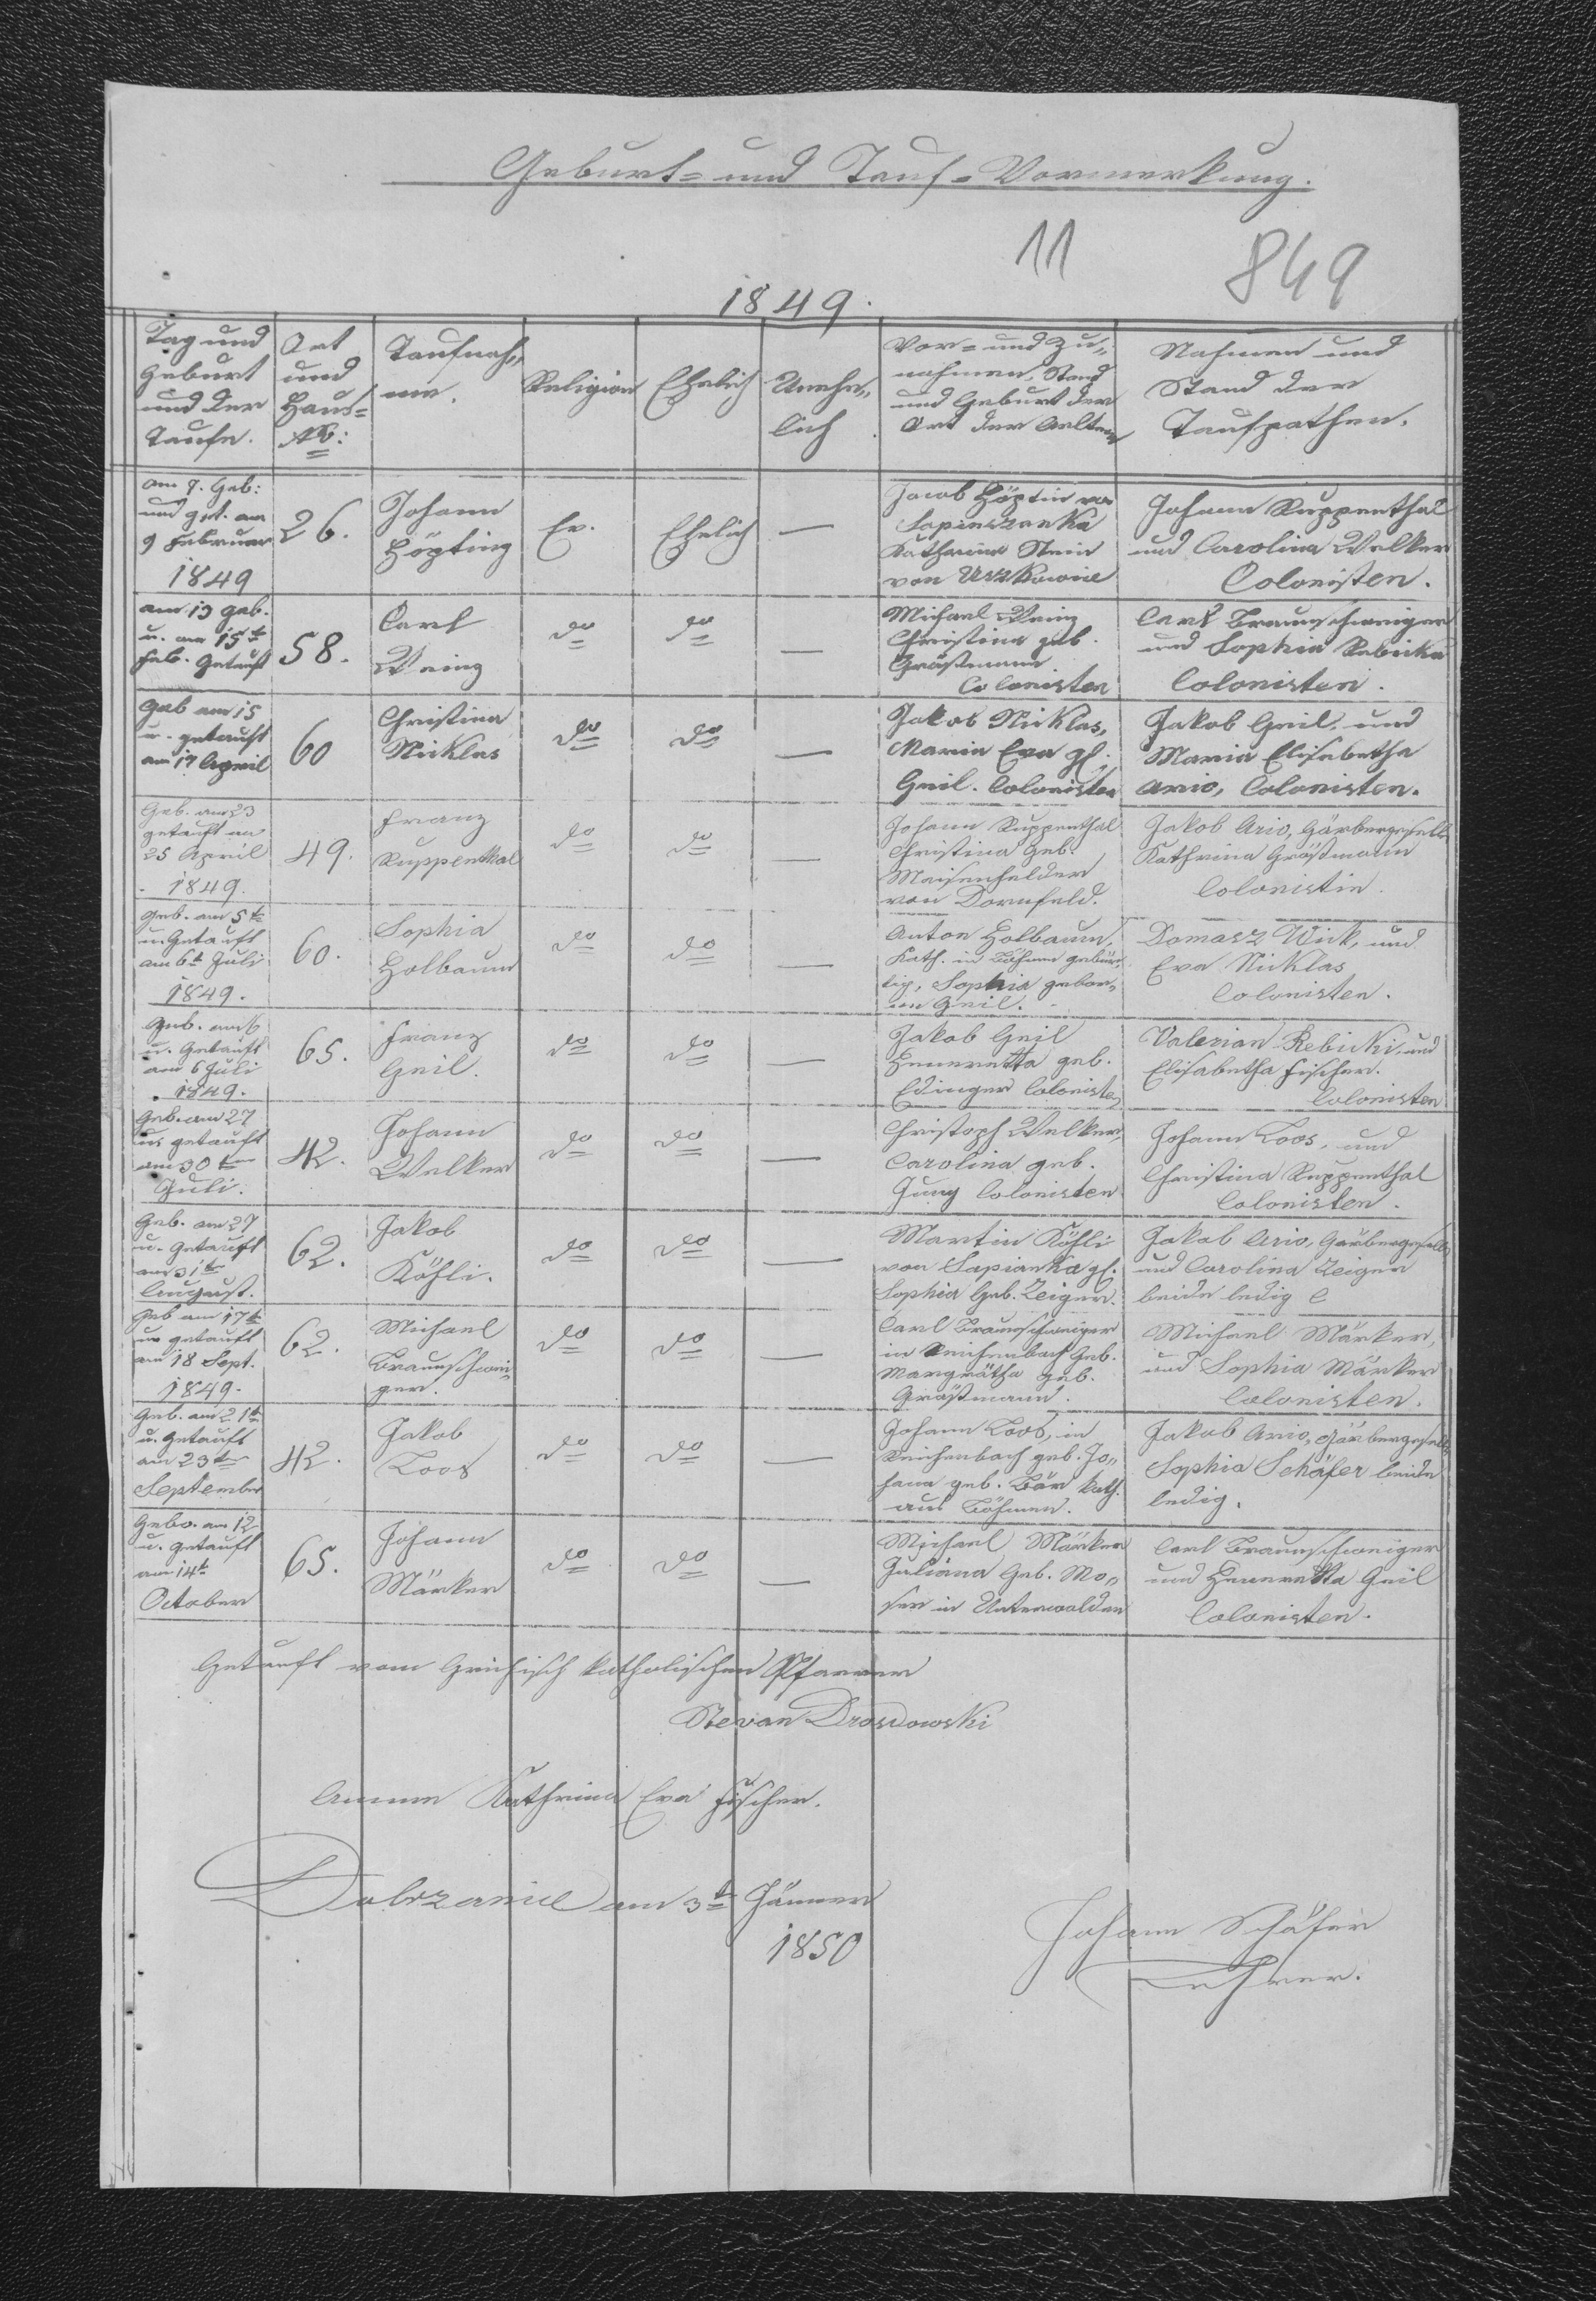 Geburt- und Tauf-Vormerkung.
11 849
1849.
Tag und
Geburt
und der
Taufe.
Ort
und
Haus-
No:
Taufnah-
me.
Religion
Ehelich
Unehe-
lich
Vor- und Zu-
nahmen, Stand
und Geburt der
Ort der Aeltern
Nahmen und
Stand der
Taufpathen.
am 7. Geb:
und get. am
9 Februar
1849
26.
Johann
Höpting
Ev.
Ehelich
—
Jacob Höptin von
Sapieszanka
Katharina Stein
von Uszkowice
Johann Ruppenthal
und Carolina Welker
Colonisten.
am 13 geb.
u. am 15t
Feb. Getauft
58.
Carl
Weinz
do
do
—
Michael Weinz
Christina geb.
Gräßmann
Colonisten
Carl Braunschweiger
und Sophia Rebicka
Colonisten.
Geb am 15
u. getauft
am 17 April
60
Christina
Nicklas
do
do
—
Jakob Nicklas,
Maria Eva
Geil. Colonisten
Jakob Geil, und
Maria Elisabetha
Ario, Colonisten.
Geb. am 23
getauft am
25 April
1849.
49.
Franz
Ruppenthal
do
do
—
Johann Ruppenthal
Christina geb.
Maisenhelder
von Dornfeld.
Jakob Ario, Gärbergesell
Kathrina Gräßmann
Colonistin.
Geb. am 5te
u. Getauft
am 6t Juli
1849.
60.
Sophia
Holbaum
do
do
—
Anton Holbaum,
Kath. in Böhmen gebür-
tig, Sophia gebor-
ne Geil.
Domasz Wick, und
Eva Nicklas
Colonisten.
Geb. am 6
u. Getauft
am 6 Juli
1849.
65.
Franz
Geil.
do
do
—
Jakob Geil
Heneretta geb.
Edinger Colonisten
Valerian Rebicki, und
Elisabetha Fischer.
Colonisten
Geb. am 27
u. getauft
am 30te
Juli.
42.
Johann
Welker
do
do
—
Christoph Welker,
Carolina geb.
Jung Colonisten
Johann Loos, und
Christina Ruppenthal
Colonisten.
Geb. am 27
u. Getauft
am 31te
August.
62.
Jakob
Köhli.
do
do
—
Martin Köhli
von Sapianka
Sophia Geb. Zeiger.
Jakob Ario, Gärbergesell
und Carolina Zeiger
beide ledig
Geb am 17te
u. getauft
am 18 Sept.
1849.
62.
Michael
Braunschwei-
ger.
do
do
—
Carl Braunschweiger
in Reichenbach Geb.
Margrätha geb.
Gräßmann.
Michael Märker,
und Sophia Märker
Colonisten.
Geb. am 21te
u. Getauft
am 23te
September
42.
Jakob
Loos
do
do
—
Johann Loos, in
Reichenbach geb. Jo-
hana geb. Bär kath.
aus Böhmen.
Jakob Ario, Gärbergesell
Sophia Schäfer beide
ledig.
Gebo. am 12
u. getauft
am 14te
October
65.
Johann
Märker
do
do
—
Michael Märker
Juliana Geb. Mo-
ser in Unterwalden
Carl Braunschweiger
und Heneretta Geil
Colonisten.
Getauft vom Grichisch katholischen Pfarrer
Stevan Drosdowski
Amme Kathrina Eva Fischer.
Dobrzanica am 3te Jänner
1850
Johann Schäfer
Lehrer.